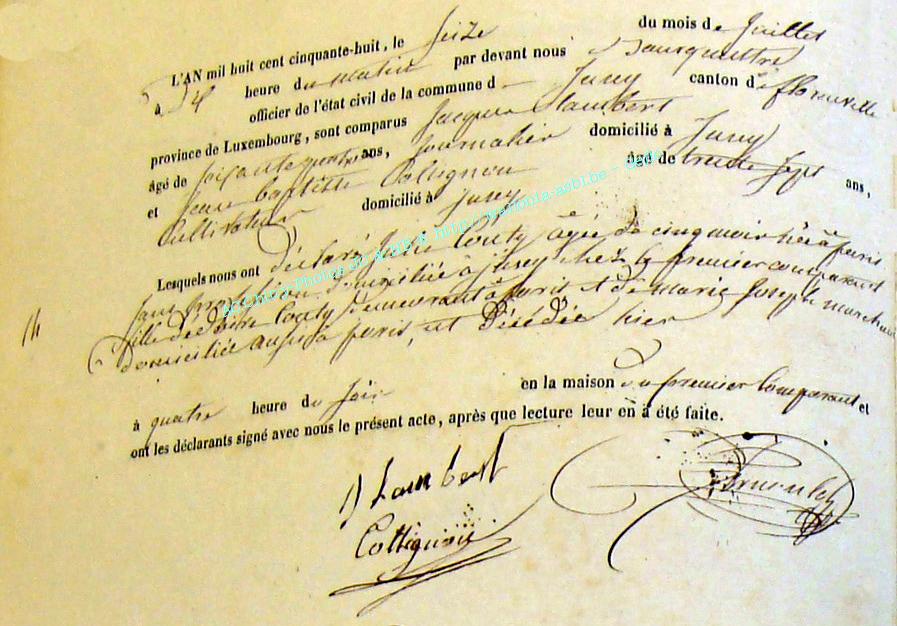 L'AN mil huit cent cinquante-huit, le seize du mois de Juillet
à heure du matin par devant nous
officier de l'état civil de la commune d Jamey canton de florenville
province de Luxembourg, sont comparus Jacques Lambert
âgé de soixante ans, journalier domicilié à Jamey
et Jean baptiste Collignon âgé de trente sept ans,
Cultivateur domicilié à Jamey
Lesquels nous ont déclaré Couty âgée de cinq mois née à paris
sans profession domiciliée à Jamey chez le premier comparant
fille de Couty demeurant à paris et de Marie Joseph
domiciliée aussi à paris, est décédée hier
à quatre heure du soir en la maison du premier Comparant et
ont les déclarants signé avec nous le présent acte, après que lecture leur en a été faite.
J Lambert
Collignon